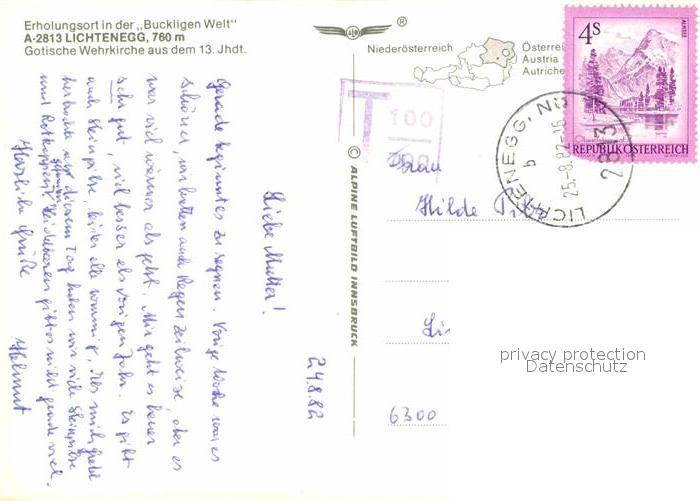 Erholungsort in der „Buckligen Welt"
A-2813 LICHTENEGG, 760 m
Gotische Wehrkirche aus dem 13. Jhdt.
®
Niederösterreich
Österrei
Austria
Autriche
4s
ALMSEE
REPUBLIK ÖSTERREICH
LICHTENEGG, NÖ
b
25.-8.82-15
2813
T 100
© ALPINE LUFTBILD INNSBRUCK
24.8.82
Liebe Mutter!
Gerade beginnt es zu regnen. Vorige Woche war es
schöner, wir hatten auch Regen zeitweise, aber es
war viel wärmer als jetzt. Mir geht es heuer
sehr gut, viel besser als voriges Jahr. Es gibt
auch Steinpilze, leider alle wurmig.
diesem Tag haben wir viele Steinpilze
und Rotkappen Heidelbeeren gibt es nicht gerade viel.
Herzliche Grüße
Helmut
Frau
Hilde
6300
privacy protection
Datenschutz